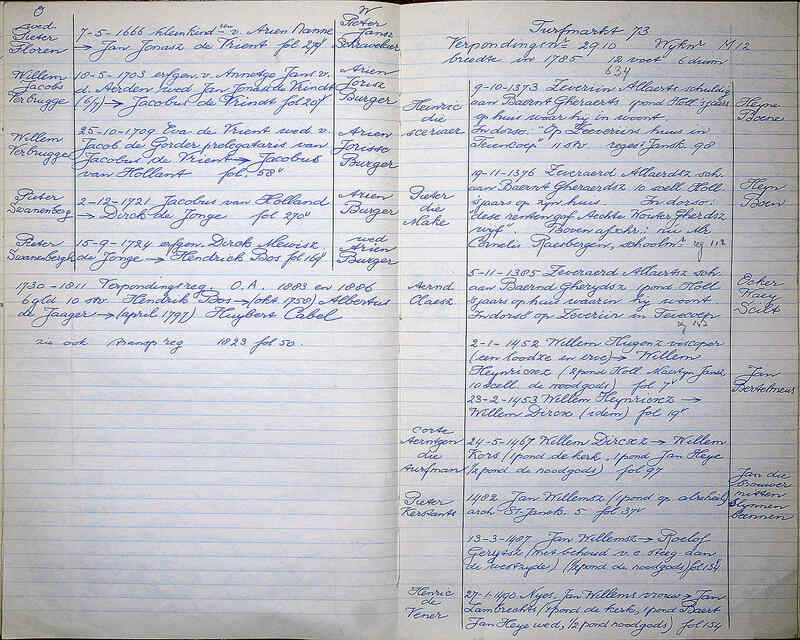 O
W
wed
Pieter
Floren
7-5-1666 kleinkind.ren v. Arien Nanne
→ Jan Jonasz de Vrient fol 274
Pieter
Jansz
Schravelaer
Willem
Jacobs
Verbugge
10-5-1703 erfgen. v. Annetge Jans v.
d. Aerden wed Jan Jonasz de Vrindt
(6/7) → Jacobus de Vrindt fol 204
Arien
Jorisz
Burger
Willem
Verbrugge
25-10-1709 Eva de Vrient wed v.
Jacob de Gorder prelegataris van
Jacobus de Vrient → Jacobus
van Hollant fol. 58
Arien
Jorisse
Burger
Pieter
Swanenberg
2-12-1721 Jacobus van Holland
→ Dirck de Jonge fol 270
Arien
Burger
Pieter
Swanenbergh
15-9-1724 erfgen. Dirck Mewisz.
de Jonge → Hendrick Bos fol 164
wed
Arien
Burger
1730-1811 Verpondingsreg. O.A. 1883 en 1886
6 gld 10 stv. Hendrik Bos → (okt 1758) Albertus
de Jaager → (april 1797) Huybert Cabel
zie ook transp reg 1823 fol 50.
Turfmarkt 73
Verpondingsnr 2910 Wyknr M 12
breedte in 1785 12 voet 6 duim
634
Heinric
die
sceriaer
9-10-1373 Zeveriin Allaerts. schuldig
aan Baernt Gheraerts 1 pond Holl 's jaers
op huis waar hy in woont.
In dorso: "Op Zeeveriins huus in
Teeuecoep" 11 stv reges. Jansk. 98
Heyne
Boene
Pieter
die
Make
19-11-1376 Zeveraerd Allaerdsz sch.
aan Baernt Gheraerdsz 10 scell Holl
's jaars op zyn huis. In dorso:
"dese rentengaf Aechte Wouter Gherdsz
wyf". Boven afschr.: nu Mr.
Cornelis Raesbergen, schoolmr reg 112
Heyn
Boen
Aernd
Claesz
5-11-1385 Zeveraerd Allaertsz sch.
aan Baernd Gherydsz 1 pond Holl
's jaers op huis waarin hy woont.
In dorso "op Zeveriin in Teeucoep
reg 142
Ocker
Wary
Scilt
2-1-1452 Willem Hugenz viscoper
(een loodze en erve) → Willem
Heynricxz (2 pond Holl Maertyn Jansz,
10 scell. de noodgods) fol 7
Jan
Bertelmeus
23-2-1453 Willem Heynricxz →
Willem Dircx (idem) fol 19
corte
Aerntgen
die
turfman
24-5-1467 Willem Dircxz → Willem
Kors (1 pond de kerk, 1 pond Jan Heye
1/2 pond de noodgods) fol 97
Jan die
brouwer
mitten
slynnen
bannen
Pieter
Kerstants
1482 Jan Willemsz (1 pond op alreheil.)
arch. St. Jansk. 5 fol 37
13-3-1487 Jan Willemsz → Roelof
Gerytsz (met behoud v. e steeg aan
de westzyde) (1/2 pond de noodgods) fol 134
Henric
de
Vener
27-1-1490 Nyes. Jan Willems vrouw → Jan
Lambrechts (1 pond de kerke, 1 pond Baert
Jan Heye wed, 1/2 pond noodgods) fol 154